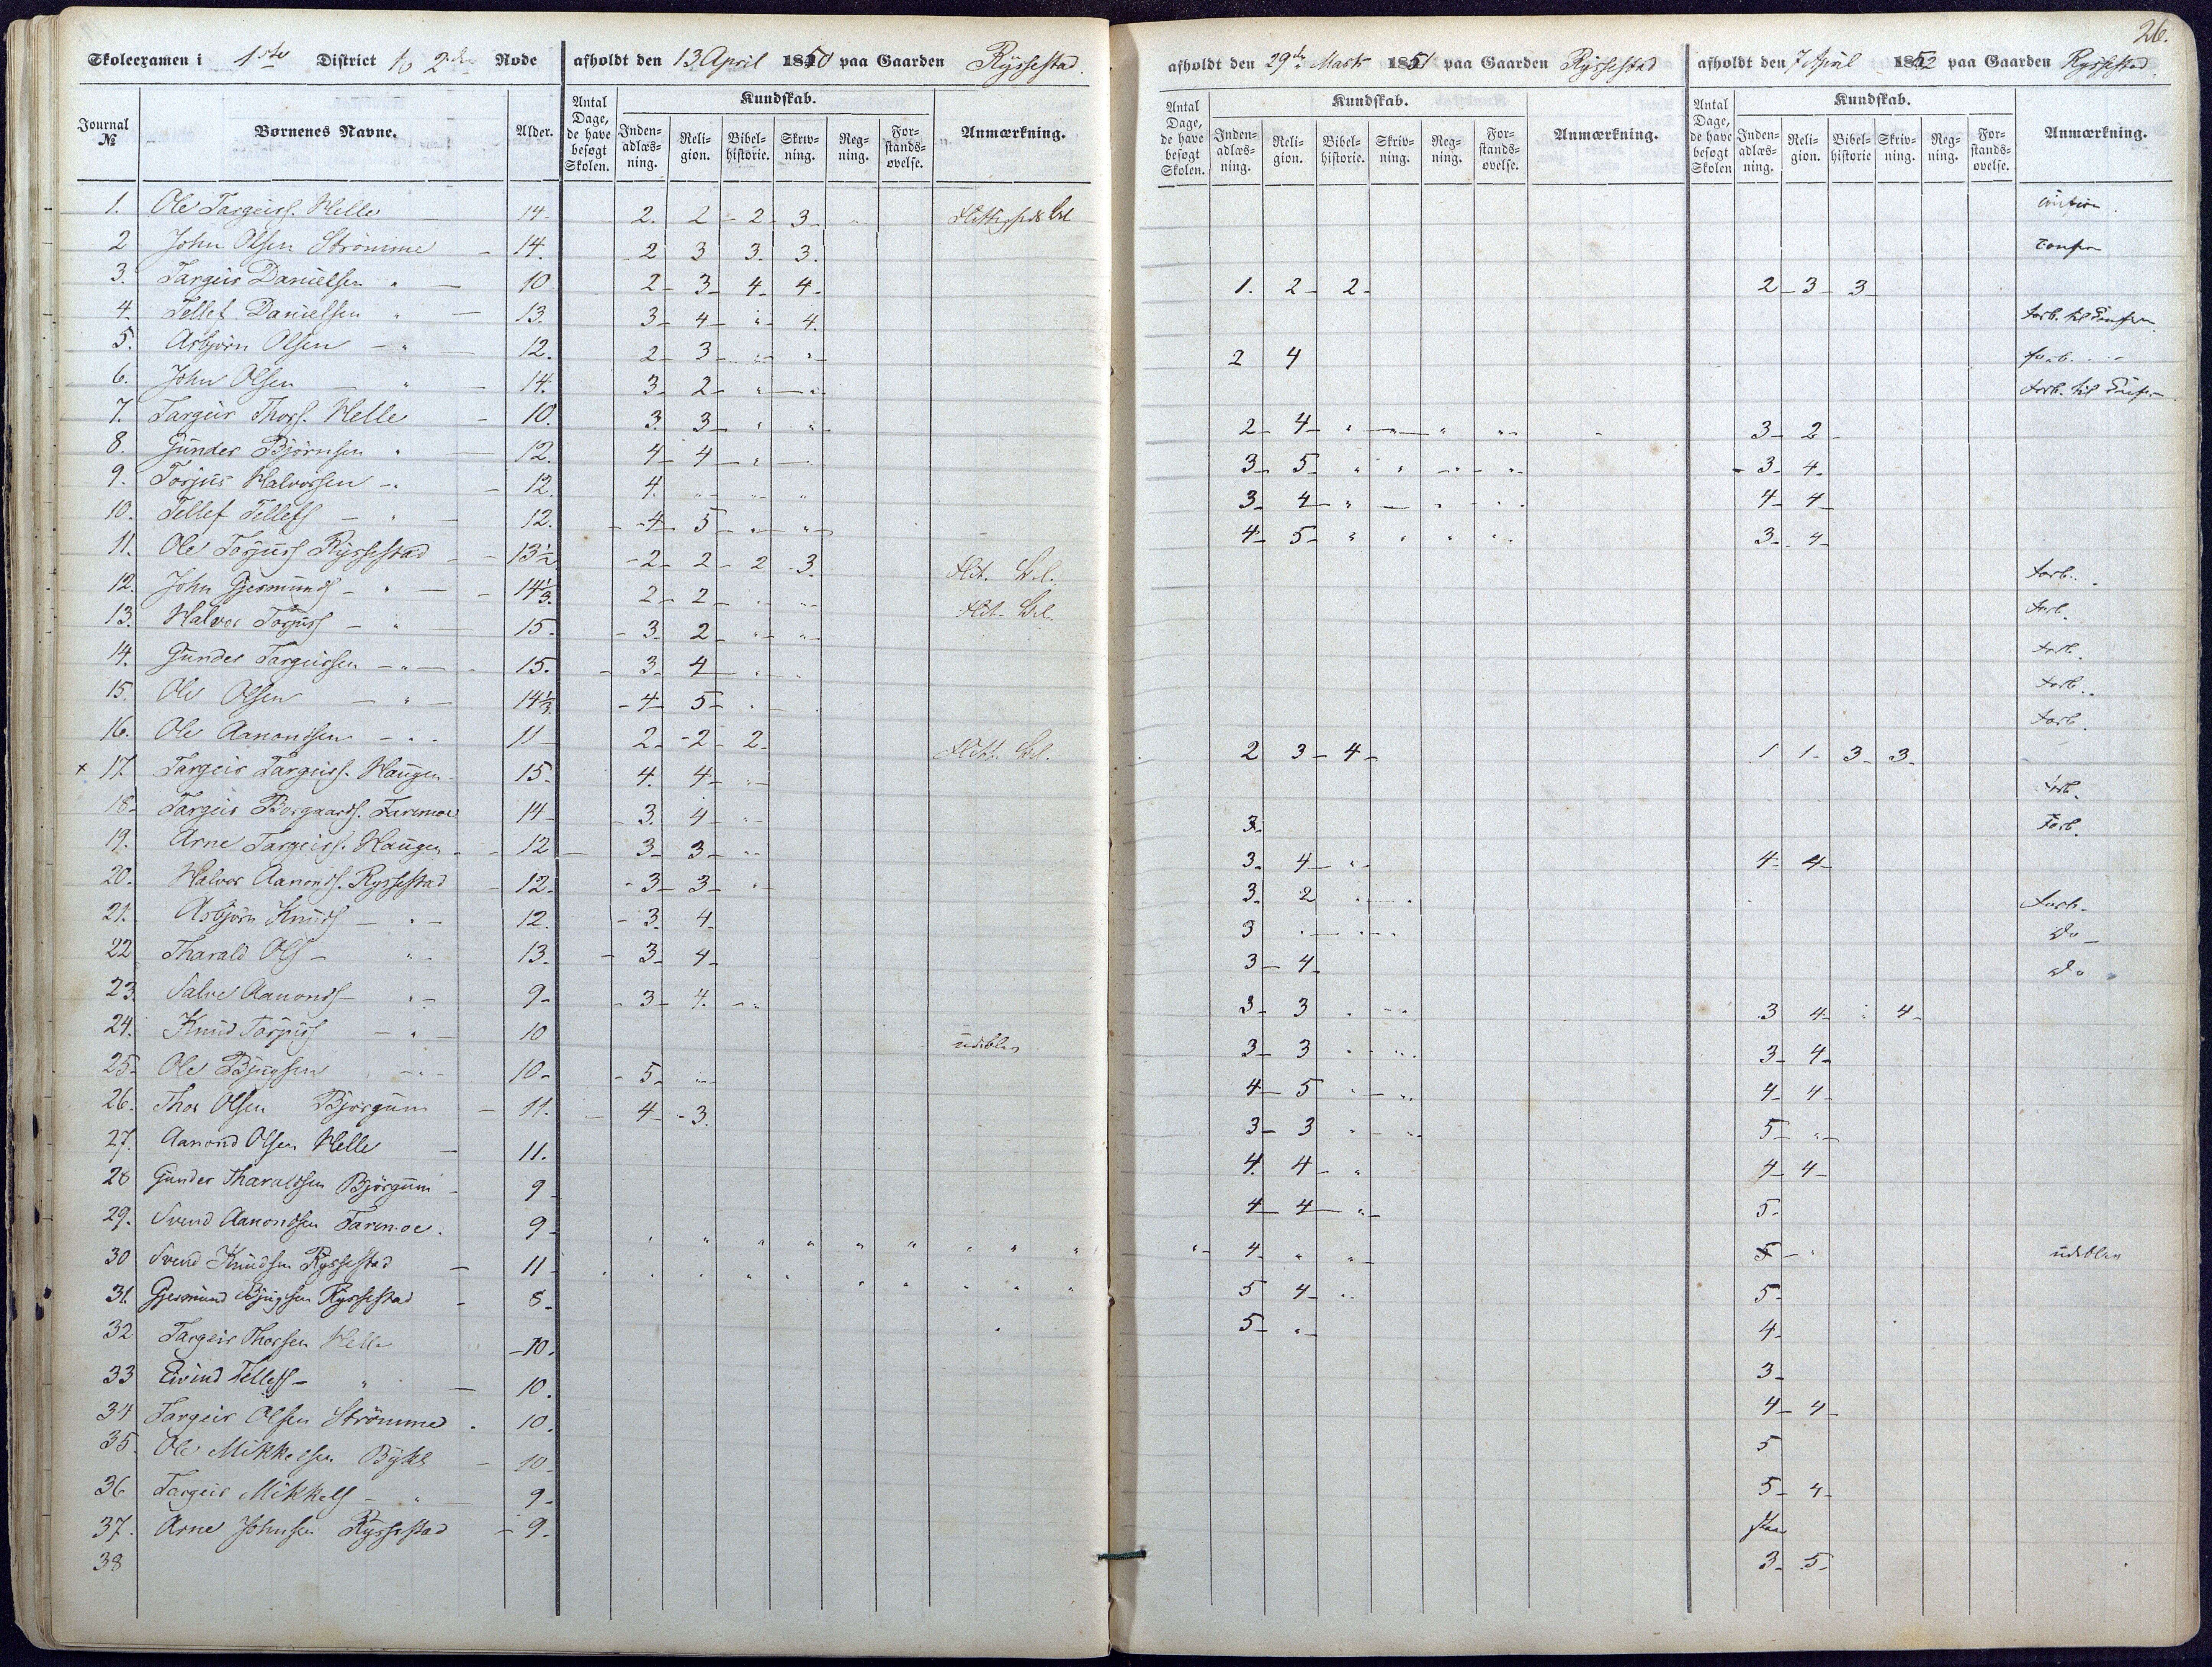 26.
Skoleexamen i 1ste District to 2den Rode afholdt den 13 April 1850 paa Gaarden Ryssestad. afholdt den 29de Marts 1851 paa Gaarden Ryssestad afholdt den 7 April 1852 paa Gaarden Ryssestad.
Journal № Børnenes Navne. Alder. Antal Dage, de have besøgt Skolen. Kundskab. Inden-adlæs-ning. Reli-gion. Bibel-historie. Skriv-ning. Reg-ning. For-stands-øvelse. Anmærkning.
Antal Dage, de have besøgt Skolen. Kundskab. Inden-adlæs-ning. Reli-gion. Bibel-historie. Skriv-ning. Reg-ning. For-stands-øvelse. Anmærkning.
Antal Dage, de have besøgt Skolen Kundskab. Inden-adlæs-ning. Reli-gion. Bibel-historie Skriv-ning. Reg-ning. For-stands-øvelse. Anmærkning.
1. Ole Targeirs. Helle 14. 2. 2 - 2 - 3
2 John Olsen Strömme - 14. 2 3 3. 3. confir
3. Targeir Danielsen " - 10 2 - 3 - 4 - 4 - 1. 2 - 2 - 2 - 3 - 3 -
4. Tellef Danielsen " - 13. 3 - 4 - " - 4. forb. til Confirm.
5. Asbjørn Olsen - " - 12. 2 - 3 - " - " - 2 4 forb.
6. John Olsen - " - 14. 3 - 2 - " - " forb. til Confirm
7. Targeir Thors. Helle - 10. 3. 3 - " " - 2 - 4 - " - " - " " - 3 - 2 -
8. Gunder Björnsen " - 12. 4 - 4 - " - 3 - 5 - " " - " - " - 3 - 4 -
9. Torjus Halvorsen - " - 12. 4. " - " - " 3 - 4 - " - " - " . 4 - 4 -
10. Tellef Tellefs - " - 12. - 4 - 5 - " - " - 4 - 5 - " " " " . 3 - 4 -
11. Ole Torjuss Ryssestad - 13½ - 2 - 2 - 2 . 3. Flit. forb.
12. John Gjermunds - " - 14⅓. 2 - 2 - . " Flit. forb.
13. Halvor Torjuss - " 15. - 3. 2 - " - " - forb.
14. Gunder Targeirsen - " - 15. - 3 - 4 - . " forb.
15. Ole Olsen - " - 14⅓. - 4 - 5 - " - forb.
16. Ole Aanondsen - " - 11 - 2 - - 2 - 2 - Flitt. 2 3 - 4 - 1 1 - 3 - 3 -
x 17. Targeir Targeirs. Haugen - 15. 4. 4 - " - forb.
18. Targeir Borgaards. Faremoe 14 - - 3. 4 - " - 3. Forb.
19. Arne Targeirs. Haugen - 12 - 3 - 3 - " - 3. 4 - " - 4 - 4 -
20. Halvor Aanonds. Ryssestad - 12. - 3 - 3 - " - 3. 2 . . forb.
21. Asbjørn Knuds - " - 12. - 3. 4. 3 . - . - . do -
22 Tharald Ols - " - 13. - 3 - 4 - 3 - 4 - do
23. Salve Aanonds - " - 9 - - 3 - 4. - " 3 - 3 . - " 3 4 - " 4 -
24. Knud Torjuss - " - 10 udebl. 3 - 3 . " . 3 - 4 -
25. Ole Bjugsen - " - 10 - - 5 - " - 4 - 5 " - " . 4 - 4 -
26. Thor Olsen Bjorgum - 11. - 4 - 3. 3 - 3 " - " - 5 - " -
27. Aanond Olsen Helle - 11. 4. 4 - " 4 - 4 -
28 Gunder Tharaldsen Björgum - 9 - 4 - 4 - " - 5 -
29. Svend Aanondsen Faremoe. 9 - " " " " " " " " " " - 4 - " " - 5 - " udebl.
30 Svend Knudsen Ryssestad - 11 - . . . " " " " " " " 5 4 - " . 5 -
31. Gjermund Bjugsen Ryssestad - 8 - 5 - " - 4 -
32 Targeir Thorsen Helle - 10. 3 -
33 Eivind Tellefs - " - 10. 4 - 4 -
34 Targeir Olsen Strömme . 10. 5
35. Ole Mikkelsen Bykle - 10 - 5 - 4 -
36 Targeir Mikkels - " - 9 -
37. Arne Johnsen Ryssestad - 9. 3 - 5 -
38